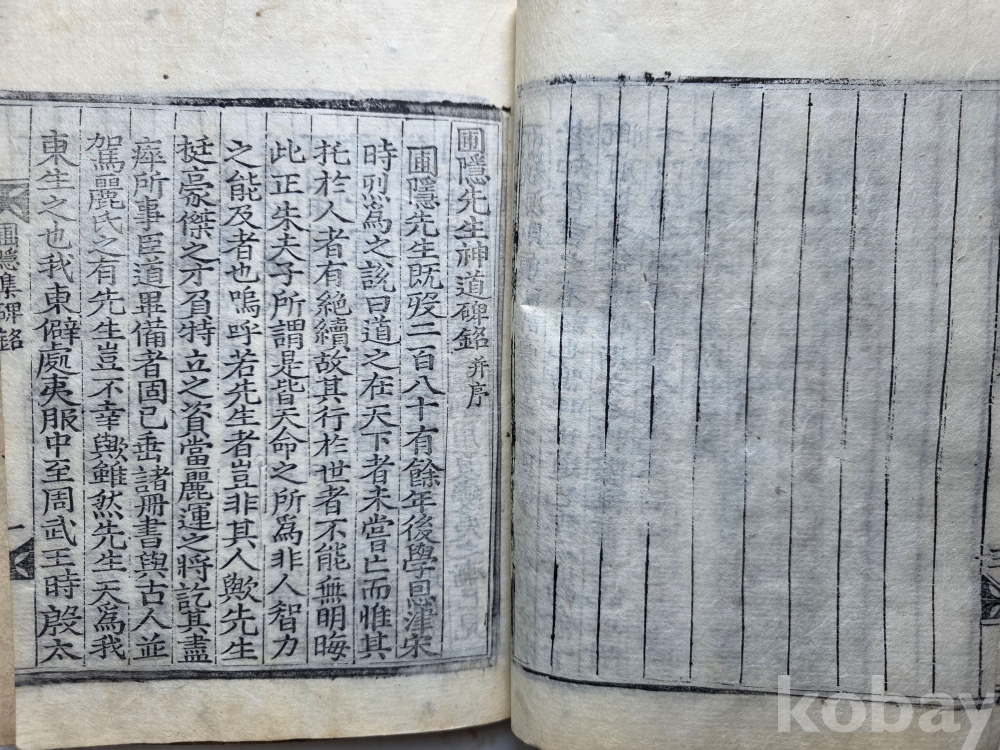 圃隱先生神道碑銘 并序
圃隱先生既歿二百八十有餘年後學恩津宋
時烈爲之說曰道之在天下者未嘗亡而惟其
托於人者有絶續故其行於世者不能無明晦
此正朱夫子所謂是皆天命之所爲非人智力
之能及者也嗚呼若先生者豈非其人歟先生
挺豪傑之才負特立之資當麗運之將訖其盡
瘁所事臣道畢備者固已垂諸冊書與古人並
駕麗氏之有先生豈不幸歟雖然先生天爲我
東生之也我東僻處夷服中至周武王時殷太
圃隱集碑銘
一
kobay